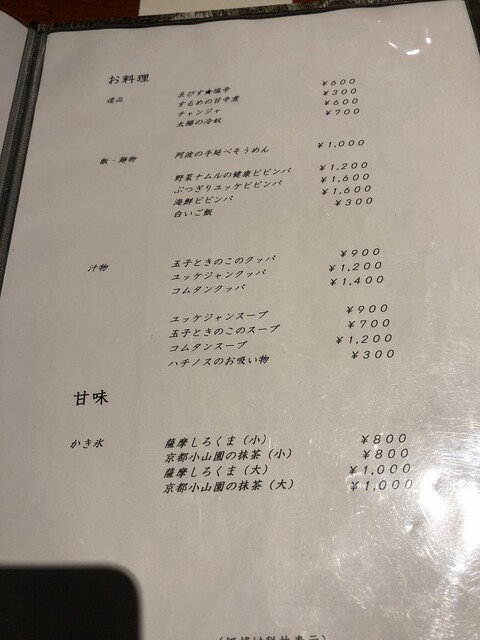 お料理
逸品
ゑびす★塩辛 ¥600
するめの甘辛煮 ¥300
チャンジャ ¥600
太陽の冷奴 ¥700
飯・麺物
阿波の手延べそうめん ¥1,000
野菜ナムルの健康ビビンバ ¥1,200
ぶつぎりユッケビビンバ ¥1,600
海鮮ビビンバ ¥1,600
白いご飯 ¥300
汁物
玉子ときのこのクッパ ¥900
ユッケジャンクッパ ¥1,200
コムタンクッパ ¥1,400
ユッケジャンスープ ¥900
玉子ときのこのスープ ¥700
コムタンスープ ¥1,200
ハチノスのお吸い物 ¥300
甘味
かき氷
薩摩しろくま（小） ¥800
京都小山園の抹茶（小） ¥800
薩摩しろくま（大） ¥1,000
京都小山園の抹茶（大） ¥1,000